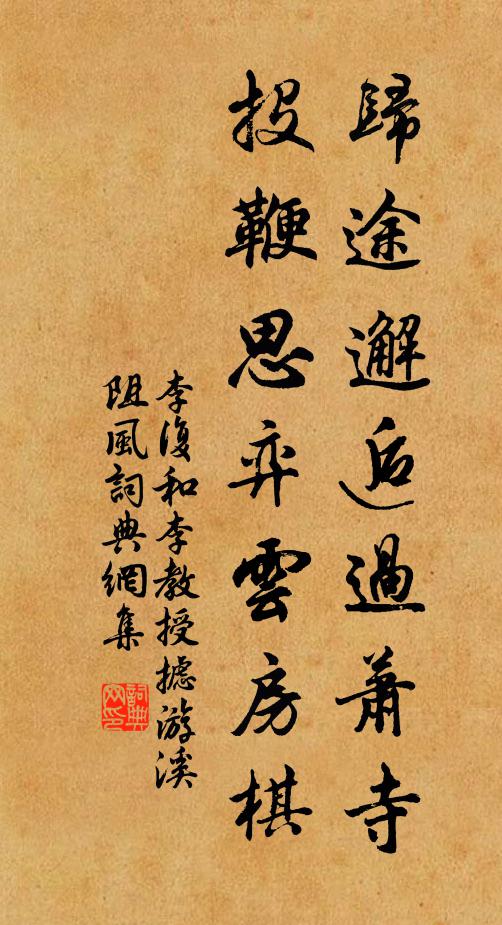 歸途邂逅過蕭寺
投鞭思弈雲房棋
李復和李教授摅游溪
阻風詞典網集
詞典网印